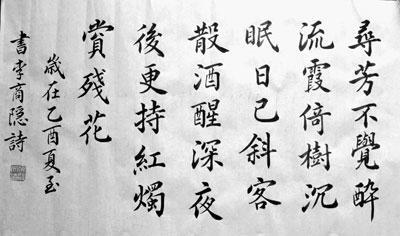 尋芳不覺醉
流霞倚樹沉
眠日已斜客
散酒醒深夜
後更持紅燭
賞殘花
歲在乙酉夏至
書李商隱詩